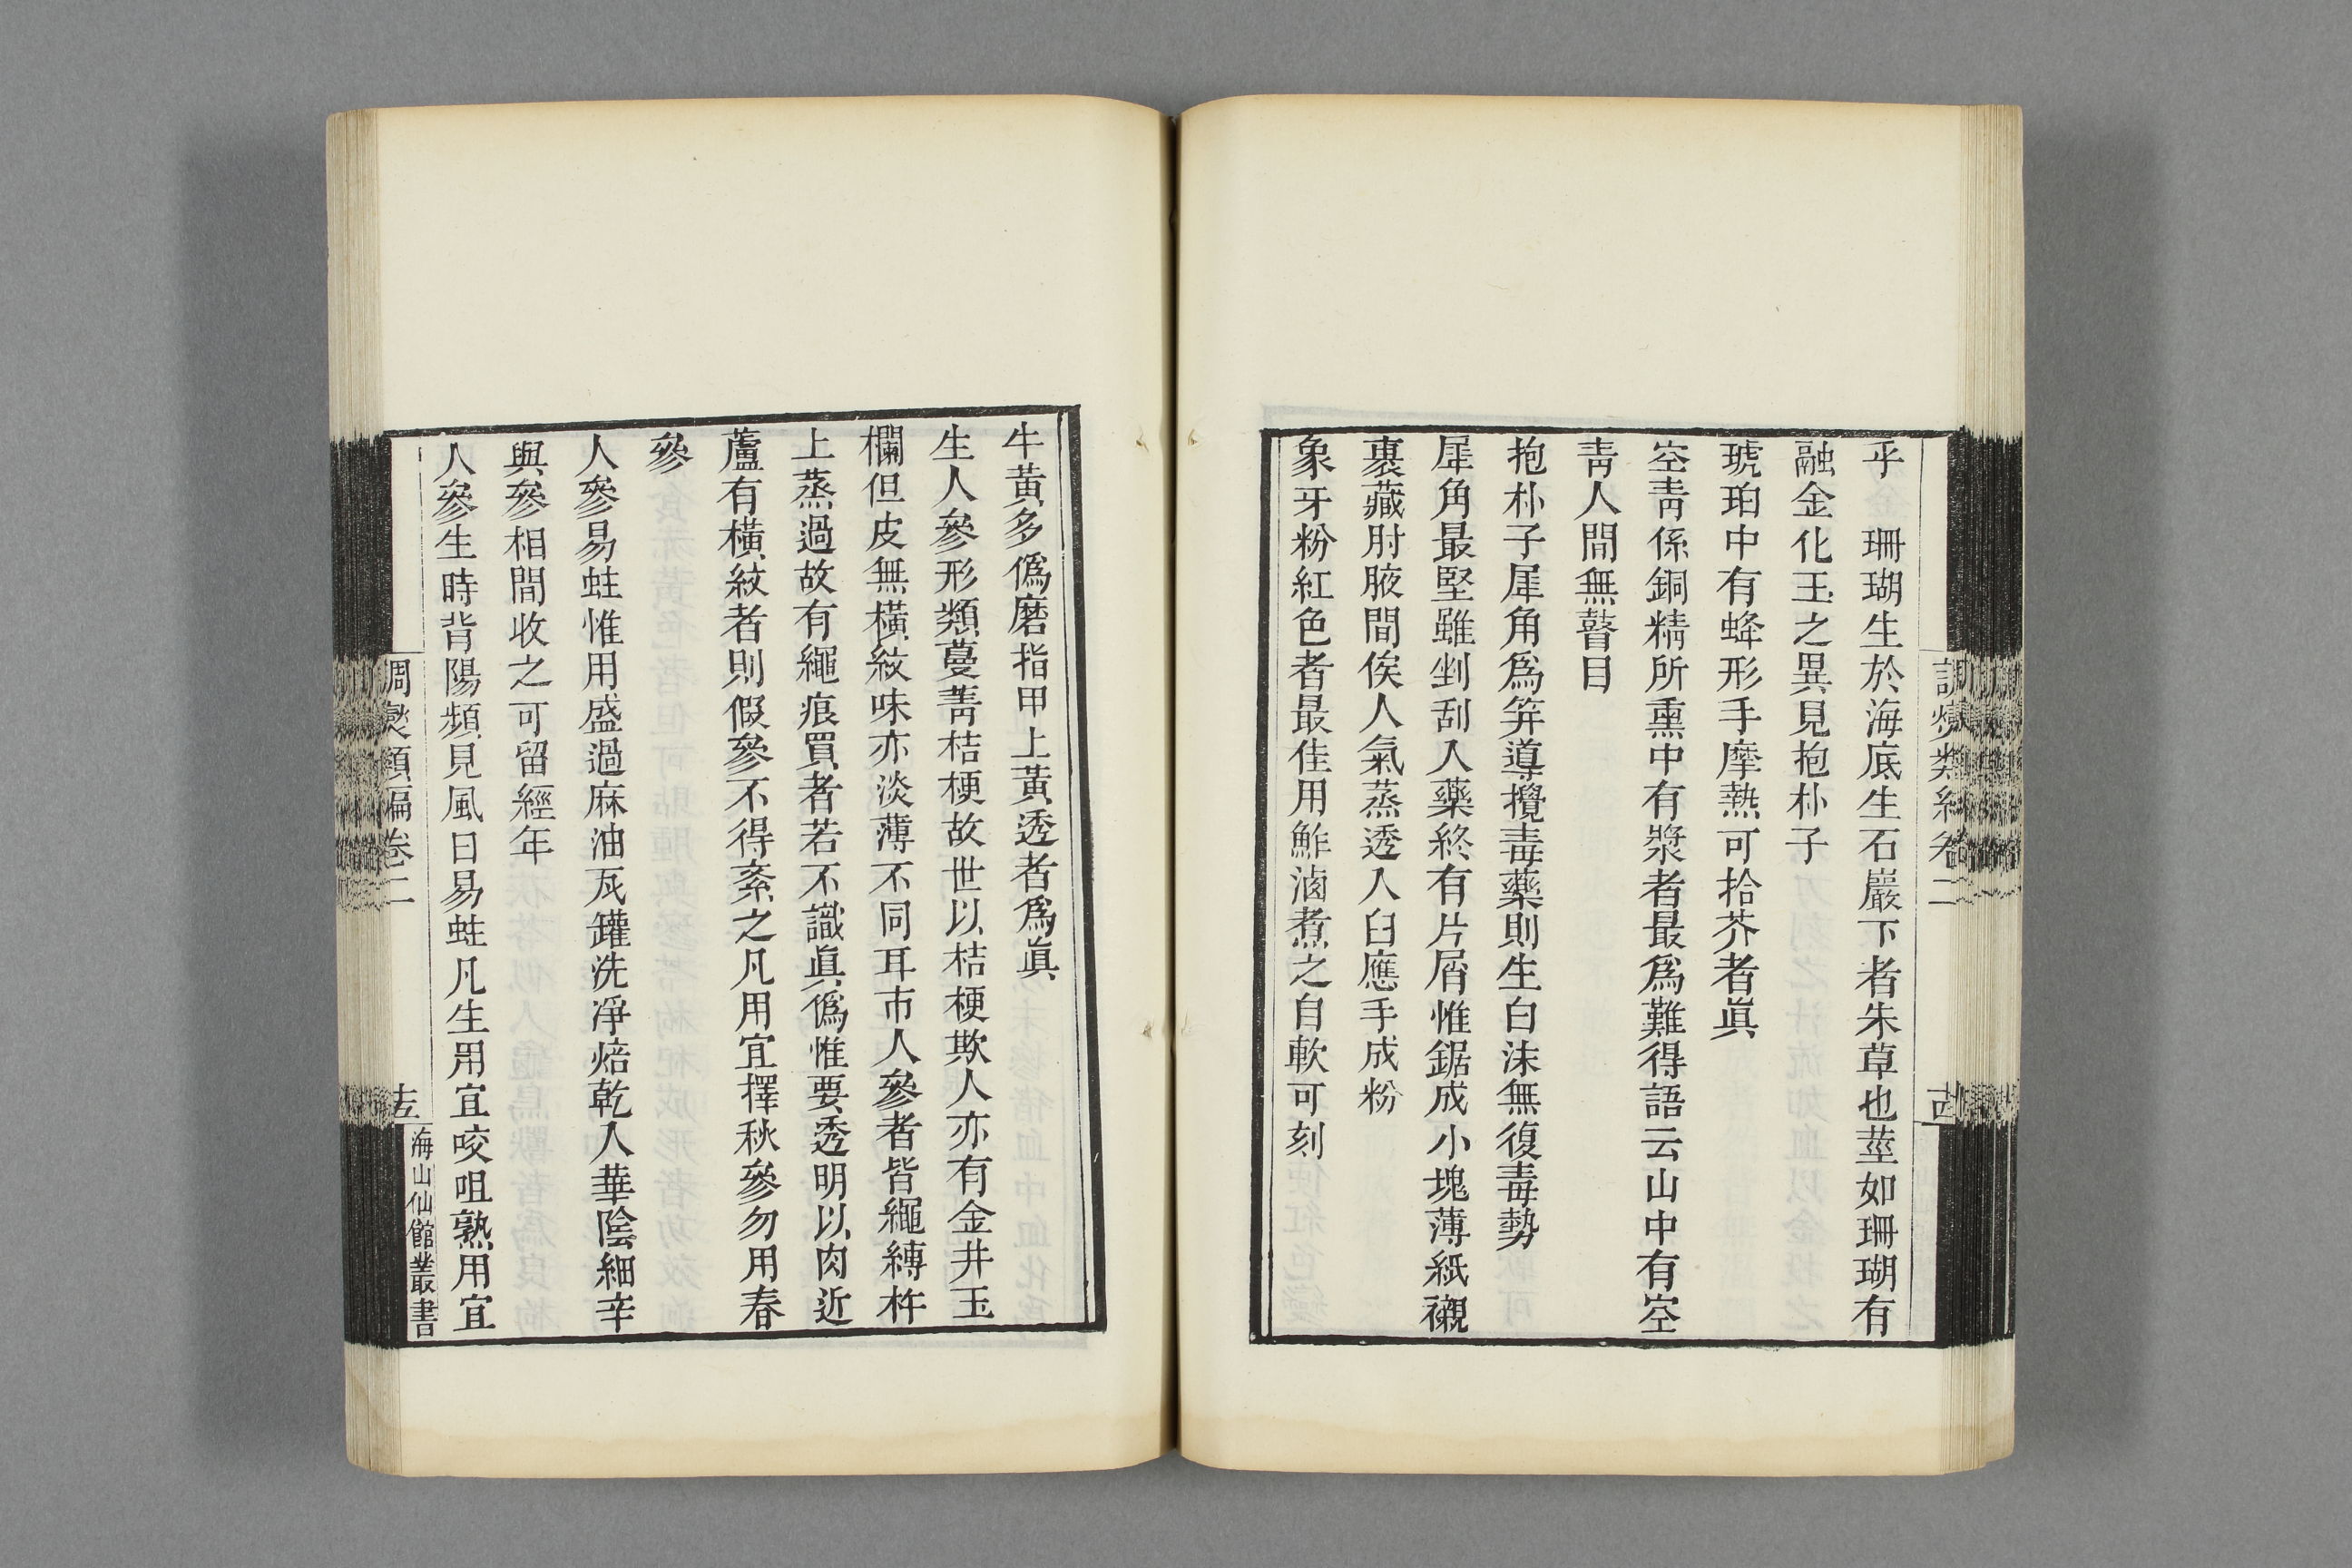 乎　珊瑚生於海底生石巖下者朱草也莖如珊瑚有
融金化玉之異見抱朴子
琥珀中有蜂形手摩熱可拾芥者眞
空靑係銅精所熏中有漿者最爲難得語云山中有空
靑人間無瞽目
抱朴子犀角爲笄導攪毒藥則生白沫無復毒勢
犀角最堅雖剉刮入藥終有片屑惟鋸成小塊薄紙襯
裹藏肘腋間俟人氣蒸透入臼應手成粉
象牙粉紅色者最佳用鮓滷煮之自軟可刻
牛黃多僞磨指甲上黃透者爲眞
生人參形類蔓菁桔梗故世以桔梗欺人亦有金井玉
欄但皮無橫紋味亦淡薄不同耳市人參者皆繩縳杵
上蒸過故有繩痕買者若不識眞僞惟要透明以肉近
蘆有橫紋者則假參不得紊之凡用宜擇秋參勿用春
參
人參易蛀惟用盛過麻油瓦罐洗淨焙乾入華陰細辛
與參相間收之可留經年
人參生時背陽頻見風日易蛀凡生用宜咬咀熟用宜
調燮類編卷二
海山仙館叢書